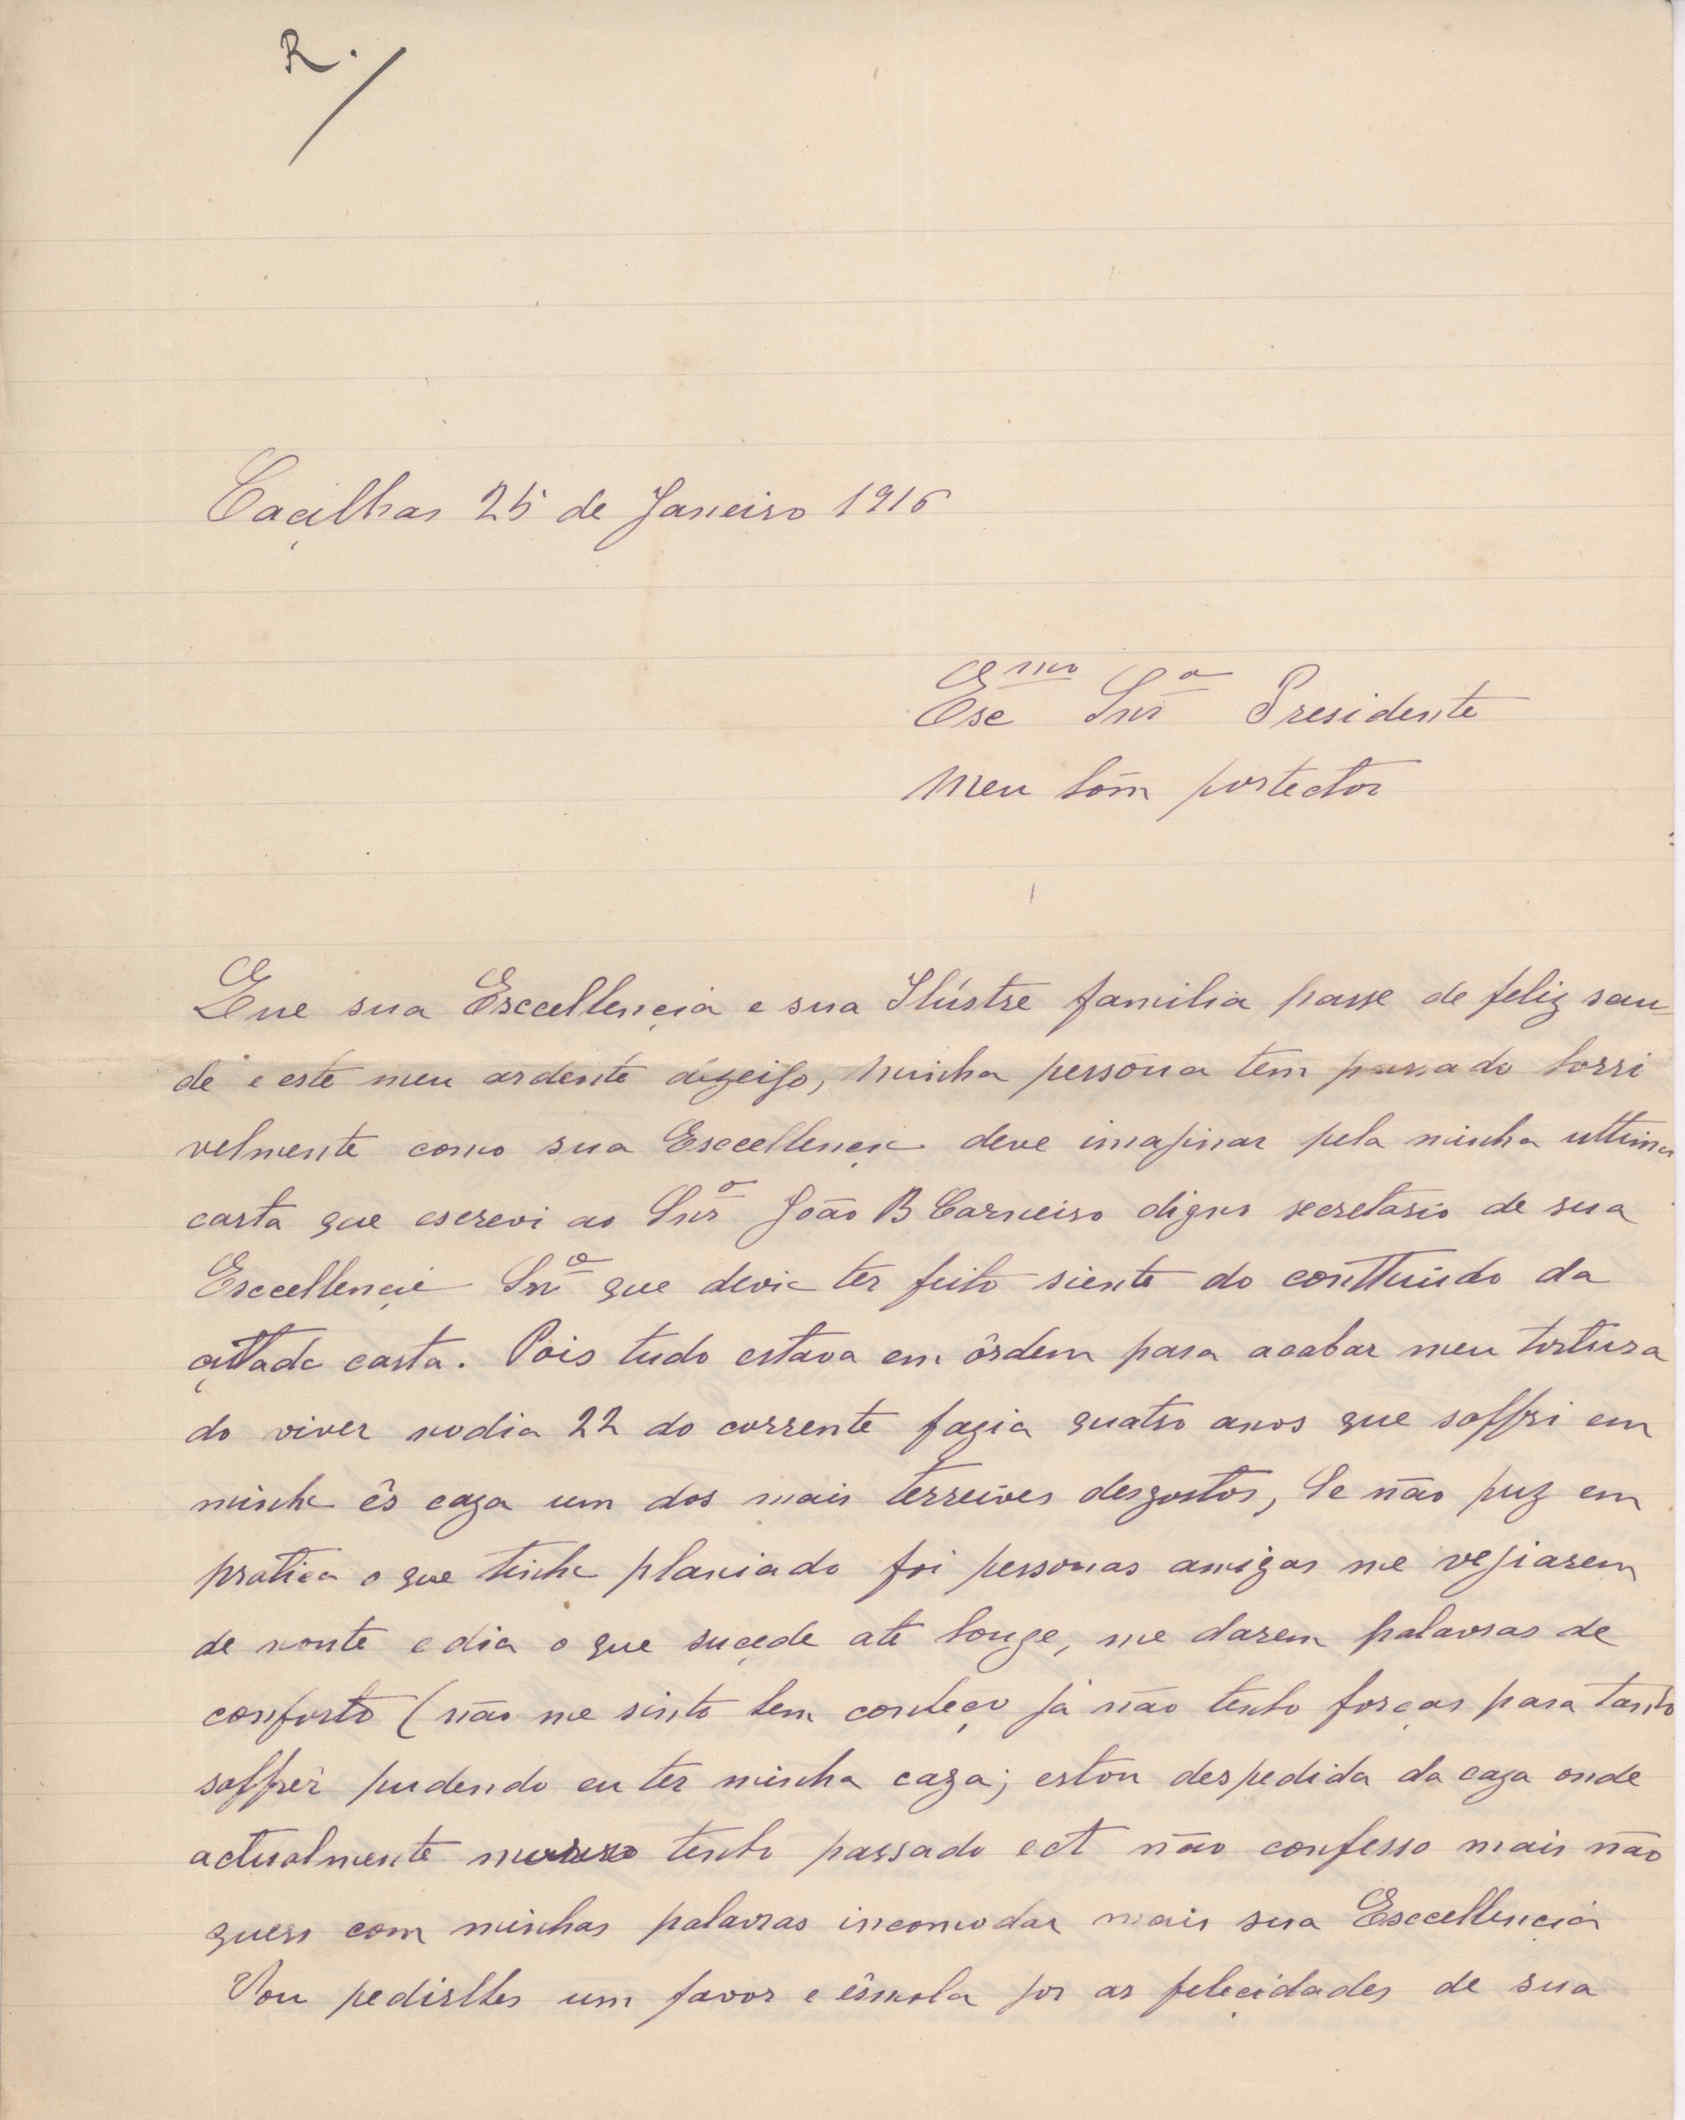 R.
Caçilhas 25 de Janeiro 1916
Esc mo Snr o Presidente
Meu bõm portector
Que sua Esccellençia e sua Ilústre familia passe de feliz sau-
de e este meu ardente dizeijo, minha persona tem passado horri
velmente como sua Esccellençia deve imajinar pela minha ultima
carta que escrevi ao Snr o João B Carneiro digno secretario de sua
Esccellençia Snr o que devia ter feito siente do conttuido da
çittada carta. Pois tudo estava em ôrdem para acabar meu tortura
do viver no dia 22 do corrente fazia quatro anos que soffri em
minha ês caza um dos mais terreives desgostos, Se não puz em
pratica o que tinha planiado foi personas amigas me vejiarem
de noute e dia o que suçede ate houge, me darem palavras de
conforto (não me sinto bem conheço já não tenho forças para tanto
soffrer pudendo eu ter minha caza; estou despedida da caza onde
actualmente tenho passado ect não confesso mais não
quero com minhas palavras incomodar mais sua Esccellençia
Vou pedirlhes um favor e êsmola por as feleçidades de sua